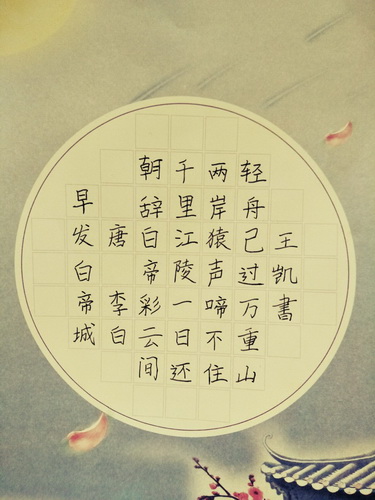 早发白帝城
唐 李白
朝辞白帝彩云间
千里江陵一日还
两岸猿声啼不住
轻舟已过万重山
王凯書